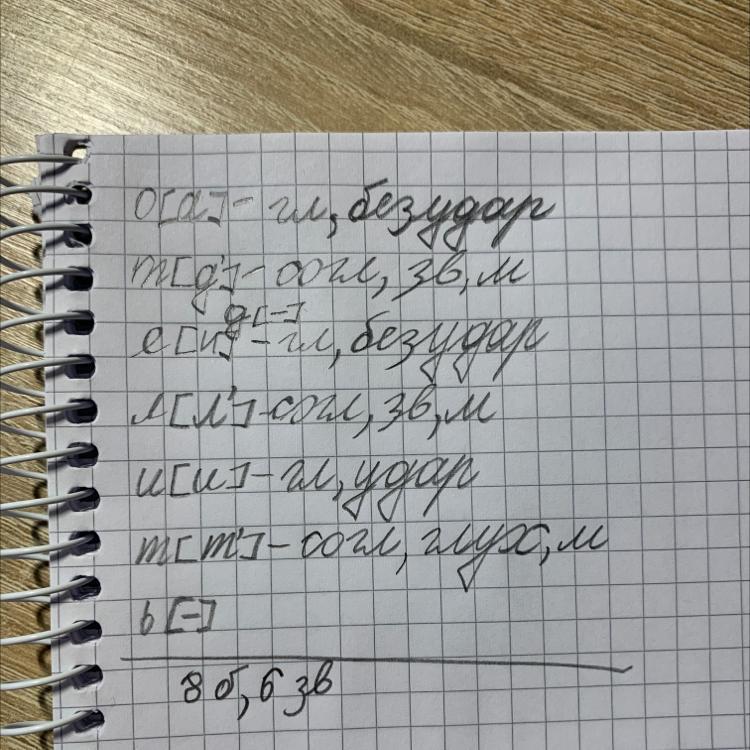 о[а]- гл, безудар
т[д']- согл, зв, м
д[-]
е[и] - гл, безудар
л[л']-согл, зв, м
и[и]- гл, удар
т[т']- согл, глух, м
ь[-]
8 б, 6 зв